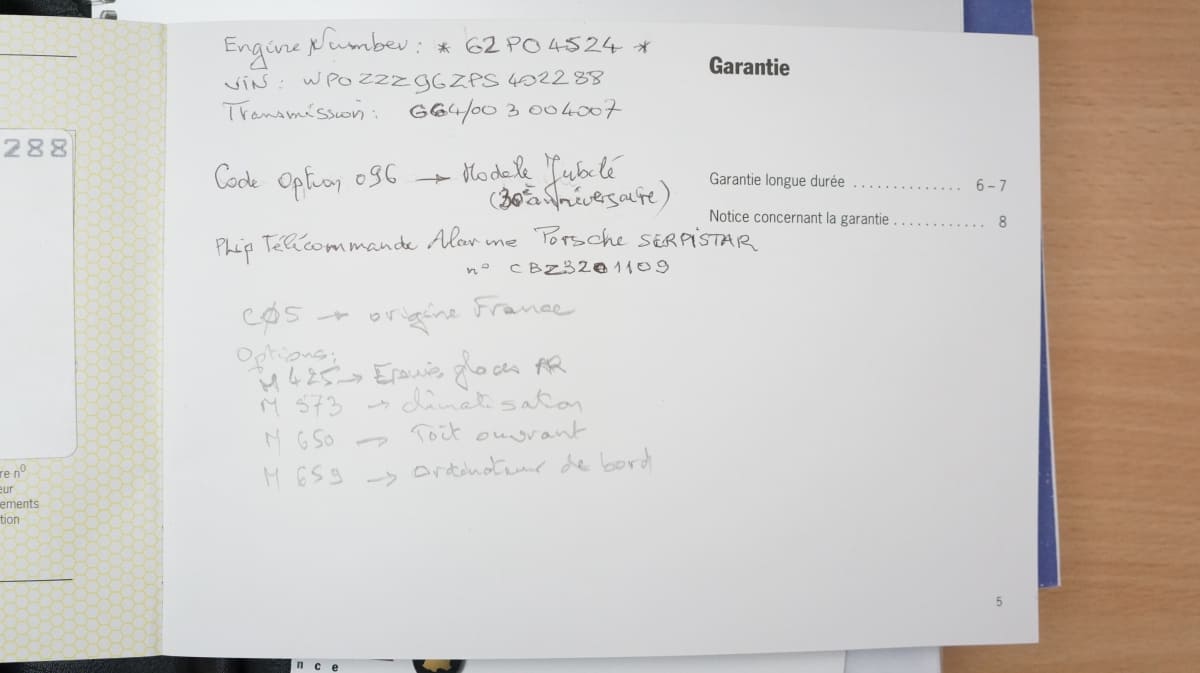 Engine Number: * 62P04524 *
VIN: WP0ZZZ96ZPS402288
Transmission: G64/00 3 004007
Code Option 096 → Modèle Jubilé
(30e anniversaire)
Phip Télécommande Alarme Porsche SERPISTAR
n° CBZ3201109
CØ5 → origine France
Options:
M 425 → Essuis glaces AR
M 573 → climatisation
M 650 → Toit ouvrant
M 659 → ordinateur de bord
Garantie
Garantie longue durée .............. 6–7
Notice concernant la garantie ............ 8
5
288
re n°
eur
ements
tion
nce